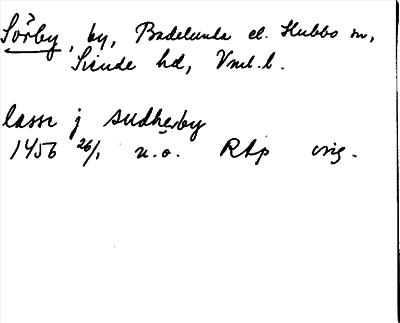 Sörby, by, Badelunda el. Hubbo sn,
Siende hd, Vml. l.
lasse j sudherby
1456 26/1 u.o. RAp orig.